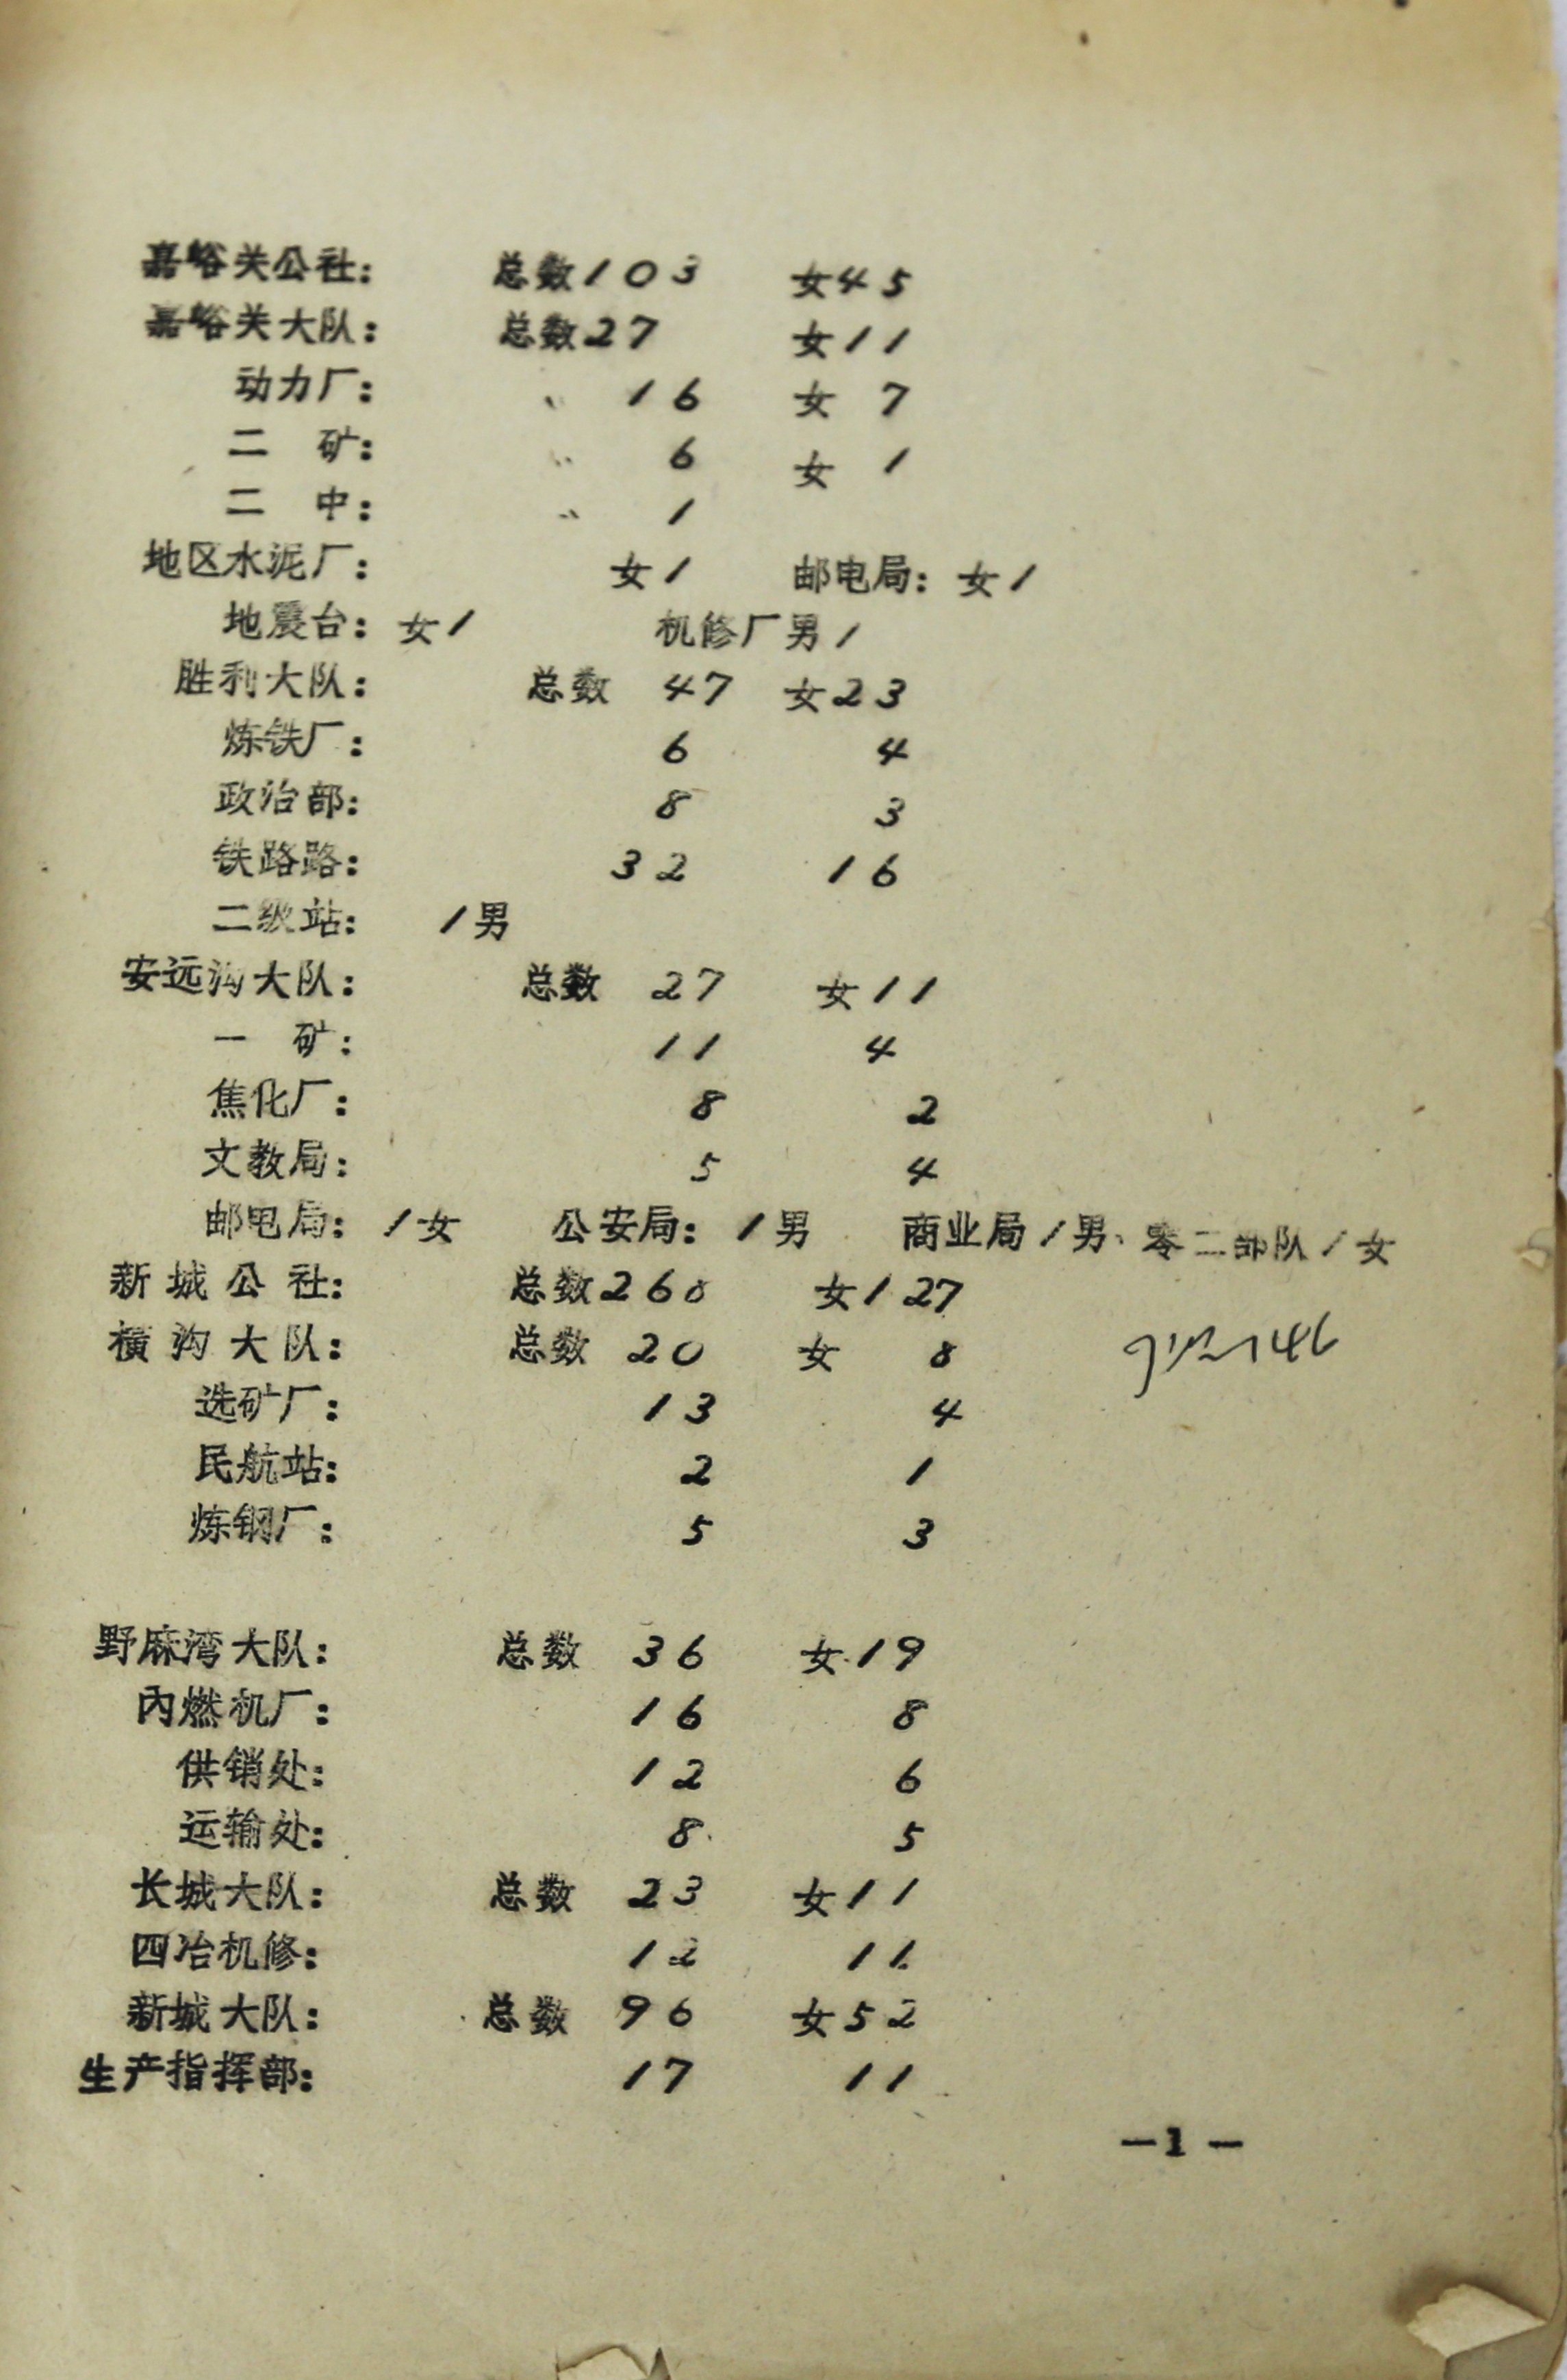 嘉峪关公社： 总数103 女45
嘉峪关大队： 总数27 女11
动力厂： 〃 16 女 7
二 矿： 〃 6 女 1
二 中： 〃 1
地区水泥厂： 女1 邮电局：女1
地震台：女1 机修厂男1
胜利大队： 总数 47 女23
炼铁厂： 6 4
政治部： 8 3
铁路路： 32 16
二级站： 1男
安远沟大队： 总数 27 女11
一 矿： 11 4
焦化厂： 8 2
文教局： 5 4
邮电局：1女 公安局：1男 商业局1男、零二部队1女
新城公社： 总数260 女127
横沟大队： 总数 20 女 8
146
选矿厂： 13 4
民航站： 2 1
炼钢厂： 5 3
野麻湾大队： 总数 36 女19
内燃机厂： 16 8
供销处： 12 6
运输处： 8 5
长城大队： 总数 23 女11
四冶机修： 12 11
新城大队： 总数 96 女52
生产指挥部： 17 11
—1—